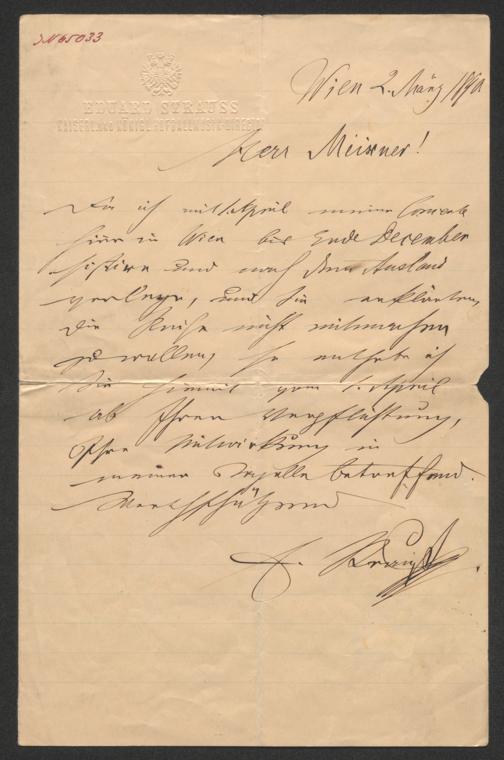 J.N 65033
EDUARD STRAUSS
KAISERL. UND KÖNIGL. HOFBALLMUSIK-DIRECTOR
Wien 2. März 1890
Herr Meixner!
Da ich mit 1. April meine Concerte
hier in Wien bis Ende December
sistire und nach dem Ausland
verlege, und Sie erklärten,
die Reise nicht mitmachen
zu wollen, so enthebe ich
Sie hiemit vom 1. April
ab Ihrer Verpflichtung,
Ihre Mitwirkung in
meiner Capelle betreffend.
Werthschätzend
E. Strauß